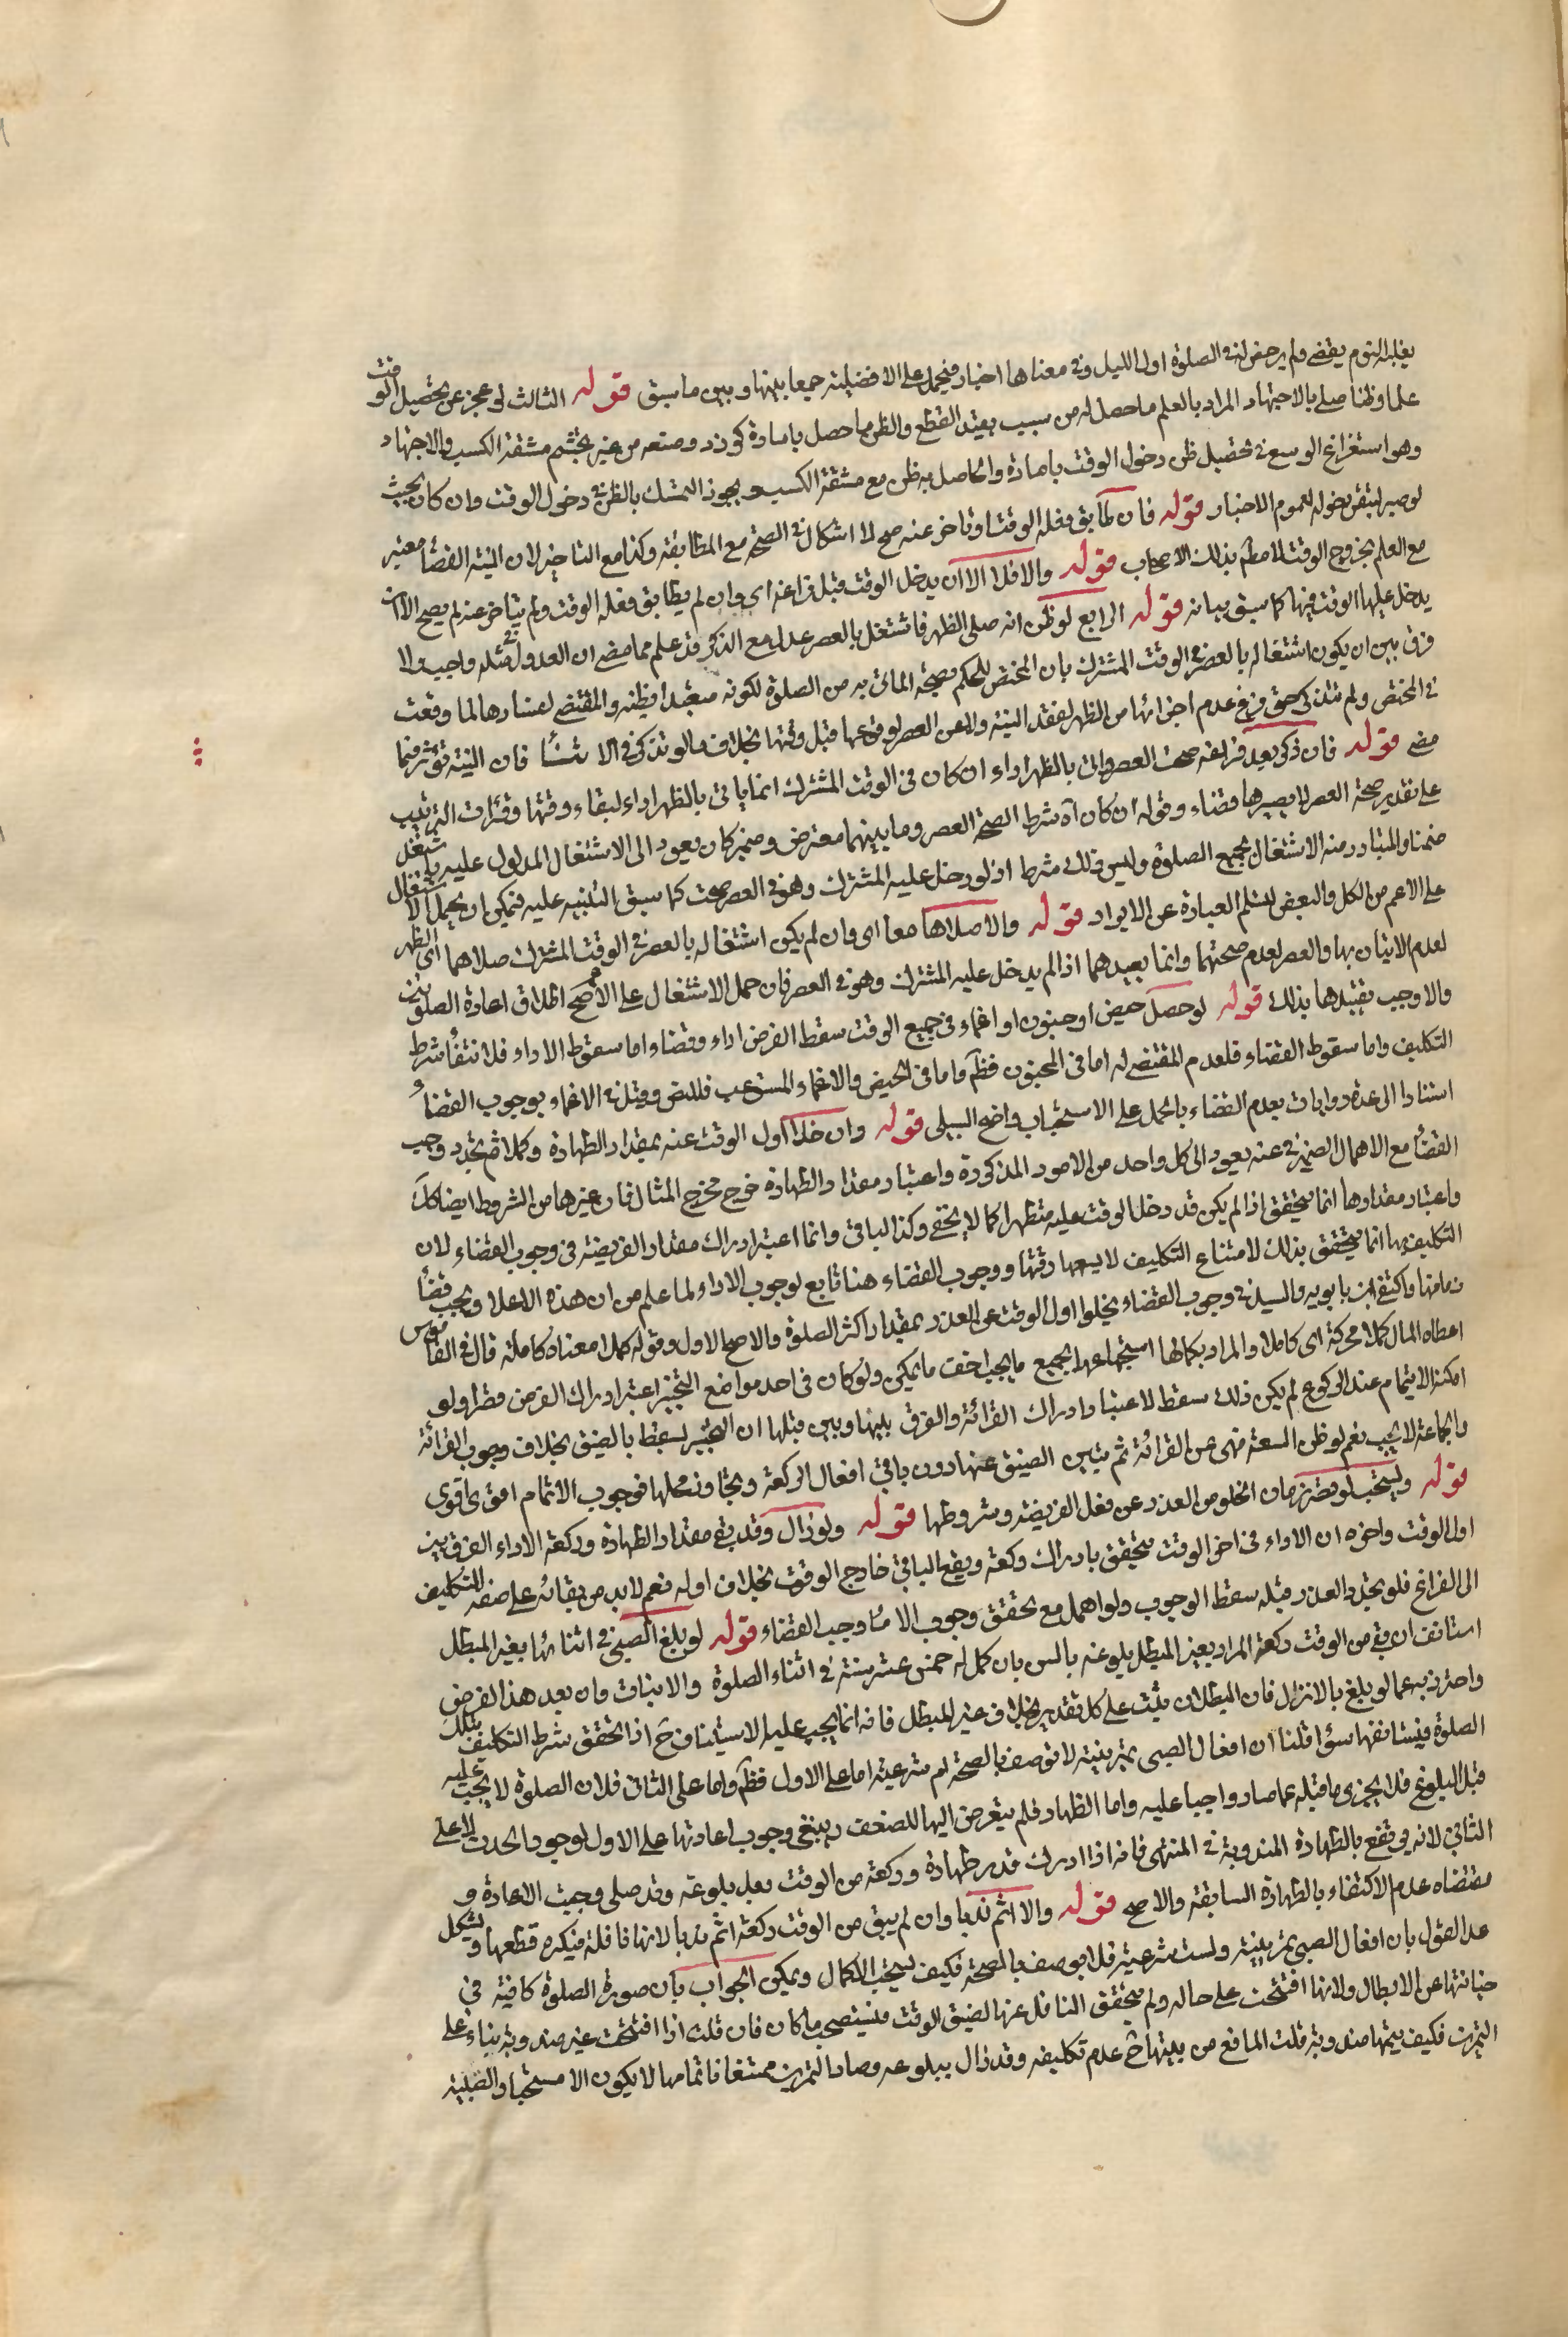 يغلبه النوم يقضي ولم يرخص له في الصلوة اول الليل وفي معناها اخبار فيحمل على الافضلية جمعا بينها وبين ما سبق قوله الثالث لو عجز عن تحصيل الوقت
علما وظنا صلى بالاجتهاد المراد بالعلم ما حصل له من سبب يفيد القطع والظن ما حصل بامارة كورد وصنعه من غير تجشم مشقة الكسب والاجتهاد
وهو استفراغ الوسع في تحصيل ظن دخول الوقت بامارة والحاصل به ظن مع مشقة الكسب ويجوز التمسك بالظن في دخول الوقت وان كان بحيث
لو صبر لتيقن دخوله لعموم الاخبار قوله فان طابق فعله الوقت او تاخر عنه صح لا اشكال في الصحة مع المطابقة وكذا مع التاخير لان النية القضأ معتبر
مع العلم بخروج الوقت لا مطم بذلك الاصحاب قوله والا فلا الا ان يدخل الوقت قبل فراغه اى وان لم يطابق فعله الوقت ولم يتاخر عنه لم يصح الا ان
يدخل عليها الوقت فيها كما سبق بيانه قوله الرابع لو ظن انه صلى الظهر فاشتغل بالعصر عدل مع الذكر قد علم مما مضى ان العدول في مثله واجب ولا
فرق بين ان يكون اشتغاله بالعصر في الوقت المشترك بان المختص للحكم بصحة الماتى به من الصلوة لكونه متعبدا بظنه والمقتضى لفسادها لما وقعت
في المختص ولم يتذكر حتى فرغ عدم اجزائها من الظهر لفقد النية والعن العصر لوقوعها قبل وقتها بخلاف ما لو تذكر في الاثنأ فان النية تؤثر فيما
مضى قوله فان ذكر بعد فراغه صحت العصر واتى بالظهر اداء ان كان في الوقت المشترك انما ياتى بالظهر اداء لبقاء وقتها وفوات الترتيب
على تقدير صحة العصر لا يصيرها قضاء وقوله ان كان آه شرط الصحة العصر وما بينهما معترض وضمير كان يعود الى الاشتغال المدلول عليه باشتغل
ضمنا والمتبادر منه الاشتغال بجميع الصلوة وليس ذلك شرطا اذ لو دخل عليه المشترك وهو في العصر صحت كما سبق التنبيه عليه فيمكن ان يحمل الاشتغال
على الاعم من الكل والبعض لتسلم العبارة عن الايراد قوله والا صلاها معا اى وان لم يكن اشتغاله بالعصر في الوقت المشترك صلاهما اى الظهر
لعدم الاتيان بها والعصر لعدم صحتهما وانما يعيدهما اذا لم يدخل عليه المشترك وهو في العصر فان حمل الاشتغال على الاعم صح اطلاق اعادة الصلوتين
والا وجب تقييدها بذلك قوله لو حصل حيض او جنون او اغماء في جميع الوقت سقط الفرض اداء وقضاء اما سقوط الاداء فلانتفأ شرط
التكليف واما سقوط القضاء فلعدم المقتضى له اما في المجنون فظم واما في الحيض والاغماء المستوعب فللنص وقيل في الاغماء بوجوب القضأ
استنادا الى عدة روايات بعدم القضاء بالحمل على الاستحباب واضح السبيل قوله وان خلا اول الوقت عنه بمقدار الطهارة وكملا ثم تجدد وجب
القضأ مع الاهمال الضمير في عنه يعود الى كل واحد من الامور المذكورة واعتبار مقدار الطهارة خرج مخرج المثال فان غيرها من الشروط ايضا كك
واعتبار مقدارها انما يتحقق اذا لم يكن قد دخل الوقت عليه متطهرا كما لا يخفى وكذا الباقي وانما اعتبر ادراك مقدار الفريضة في وجوب القضاء لان
التكليف بها انما يتحقق بذلك لامتناع التكليف لا يسعها وقتها ووجوب القضاء هنا تابع لوجوب الاداء لما علم من ان هذه الاعذار ويجب قضأ
زمانها واكتفى ابن بابويه والسيد في وجوب القضاء بخلو اول الوقت عن العذر بمقدار اكثر الصلوة والاصح الاول وقوله كملا معناه كاملة قال في القاموس
اعطاه المال كملا محركة اى كاملا والمراد بكمالها استجماعها لجميع ما يجب اخف ما يمكن ولو كان في احد مواضع التخيير اعتبر ادراك الفرض قصرا ولو
امكنه الايتمام عند الركوع لم يكن ذلك سقط لاعتبار ادراك القرائة والفرق بينها وبين قبلها ان التخيير لسقط بالضيق بخلاف وجوب القرائة
والجماعة لا تجب نعم لو ظن السعة فهى عن القرائة ثم تبين الضيق عنها دون باقى افعال الركعة وتجاوز محلها فوجوب الاتمام اقوى اقوى
قوله ويستحب لو قصر زمان الخلو من العذر عن فعل الفريضة وشروطها قوله ولو زال وقد بقى مقدار الطهارة وركعة الاداء الفرق بين
اول الوقت واخره ان الاداء في اخر الوقت يتحقق بادراك ركعة ويقع الباقي خارج الوقت بخلاف اوله نعم لابد من بقائه على صفة التكليف
الى الفراغ فلو تجدد العذر قبله سقط الوجوب ولو اهمل مع تحقق وجوب الامأ وجب القضاء قوله لو بلغ الصبي في اثنائها بغير المبطل
استانف ان بقى من الوقت ركعة المراد بغير المبطل بلوغه بالسن بان كمل له خمس عشر سنة في اثناء الصلوة والانبات وان بعد هذا الفرض
واحترز به عما لو بلغ بالانزال فان البطلان يثبت على كل تقدير بخلاف غير المبطل فانه انما يجب عليه الاستيناف ح اذا تحقق شرط التكليف بتلك
الصلوة فيستانفها سؤا قلنا ان افعال الصبى تمرينية لا توصف بالصحة ام شرعية اما على الاول فظم واما على الثاني فلان الصلوة لا يجب عليه
قبل البلوغ فلا يجزى ما قبله عما صار واجبا عليه واما الطهارة فلم يتعرض اليها المصنف وينبغى وجوب اعادتها على الاول لوجود الحدث لا على
الثاني لانه يرتفع بالطهارة المندوبة في المنتهى فانه اذا ادرك قدر طهارة وركعة من الوقت بعد بلوغه وقد صلى وجبت الاعادة و
مقتضاه عدم الاكتفاء بالطهارة السابقة والاصح قوله والا اتم ندبا وان لم يبق من الوقت ركعة اتم ندبا لانها نافلة فيكره قطعها ويشكل
عد القول بان افعال الصبى تمرينية وليست شرعية فلا يوصف بالصحة فكيف يستحب الاكمال ويمكن الجواب بان صورة الصلوة كافية في
صيانتها عن الابطال ولانها افتتحت على حاله ولم يتحقق الناقل عنها لضيق الوقت فيستصحب ما كان فان قلت اذا افتتحت غير مندوبة بناء على
التمرين فكيف يتمها مندوبة قلت المانع من نيتها ح عدم تكليفه وقد زال ببلوغه وصار التمرين ممتنعا فاتمامها لا يكون الا مستحبا والقبلية